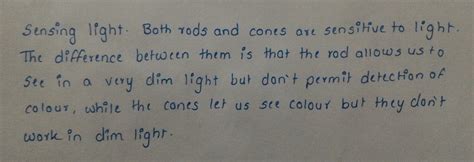 Sensing light. Both rods and cones are sensitive to light.
The difference between them is that the rod allows us to
see in a very dim light but don't permit detection of
colour, while the cones let us see colour but they don't
work in dim light.